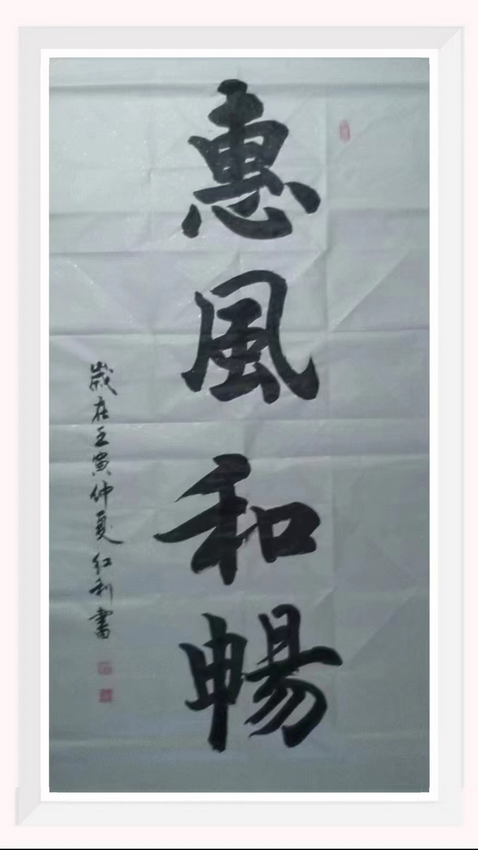 惠風和暢
歲在壬寅仲夏紅利書